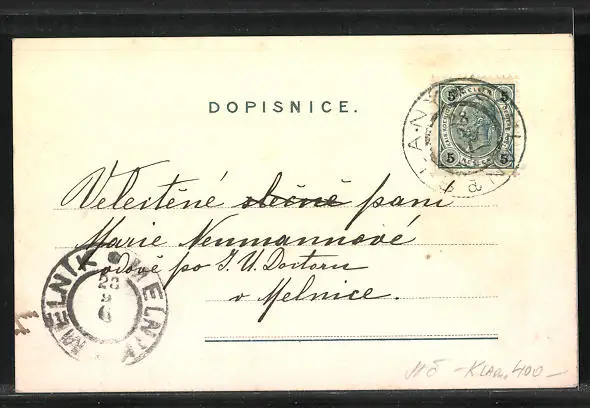 DOPISNICE.
5 5
5 5
Velectěné slečně paní
Marie Neumannové
vdově po J. U. Doctoru
v Melnice.
MELNIK MELNIK
23
9
6
400 -